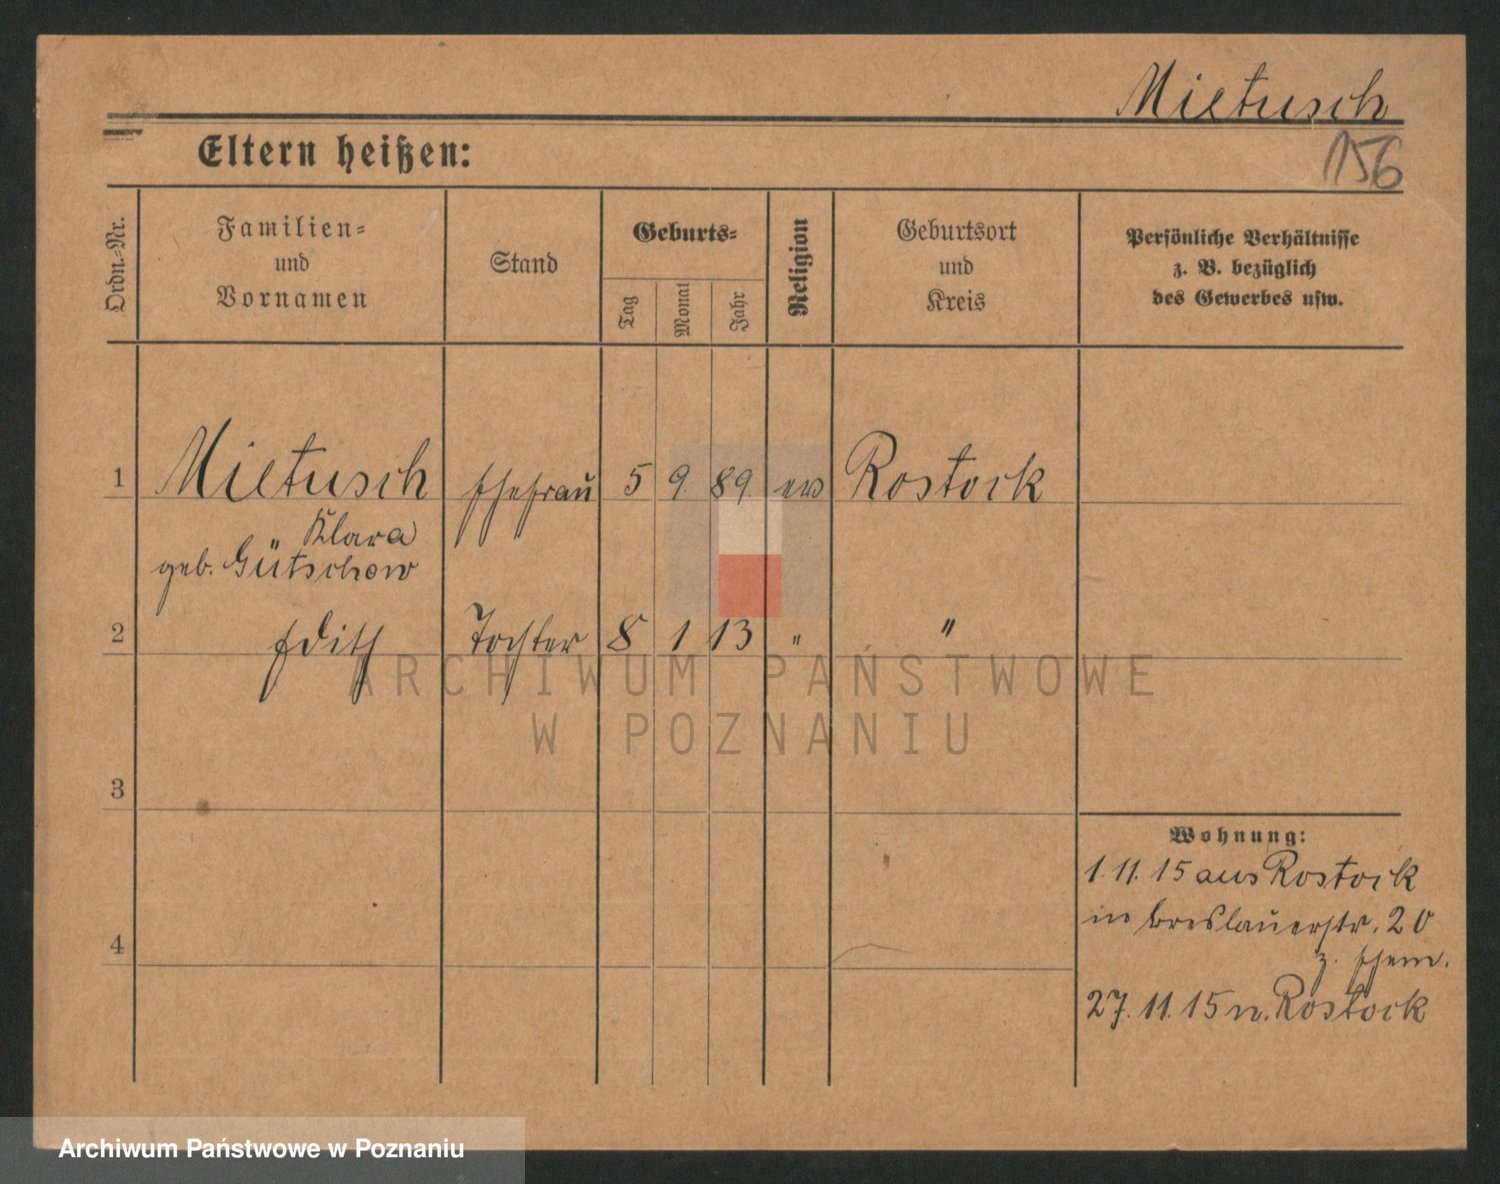 Mietusch
156
Eltern heißen:
Ordn.-Nr.
Familien-
und
Vornamen
Stand
Geburts-
Tag
Monat
Jahr
Religion
Geburtsort
und
Kreis
Persönliche Verhältnisse
z. B. bezüglich
des Gewerbes usw.
1 Mietusch Ehefrau 5 9. 89. ev Rostock
Klara
geb. Gütschow
2 Edith Tochter 8 1 13 " "
ARCHIWUM PAŃSTWOWE
W POZNANIU
3
4
Wohnung:
1. 11. 15 aus Rostock
in Breslauerstr. 20
z. Ehem.
27. 11. 15 n. Rostock
Archiwum Państwowe w Poznaniu